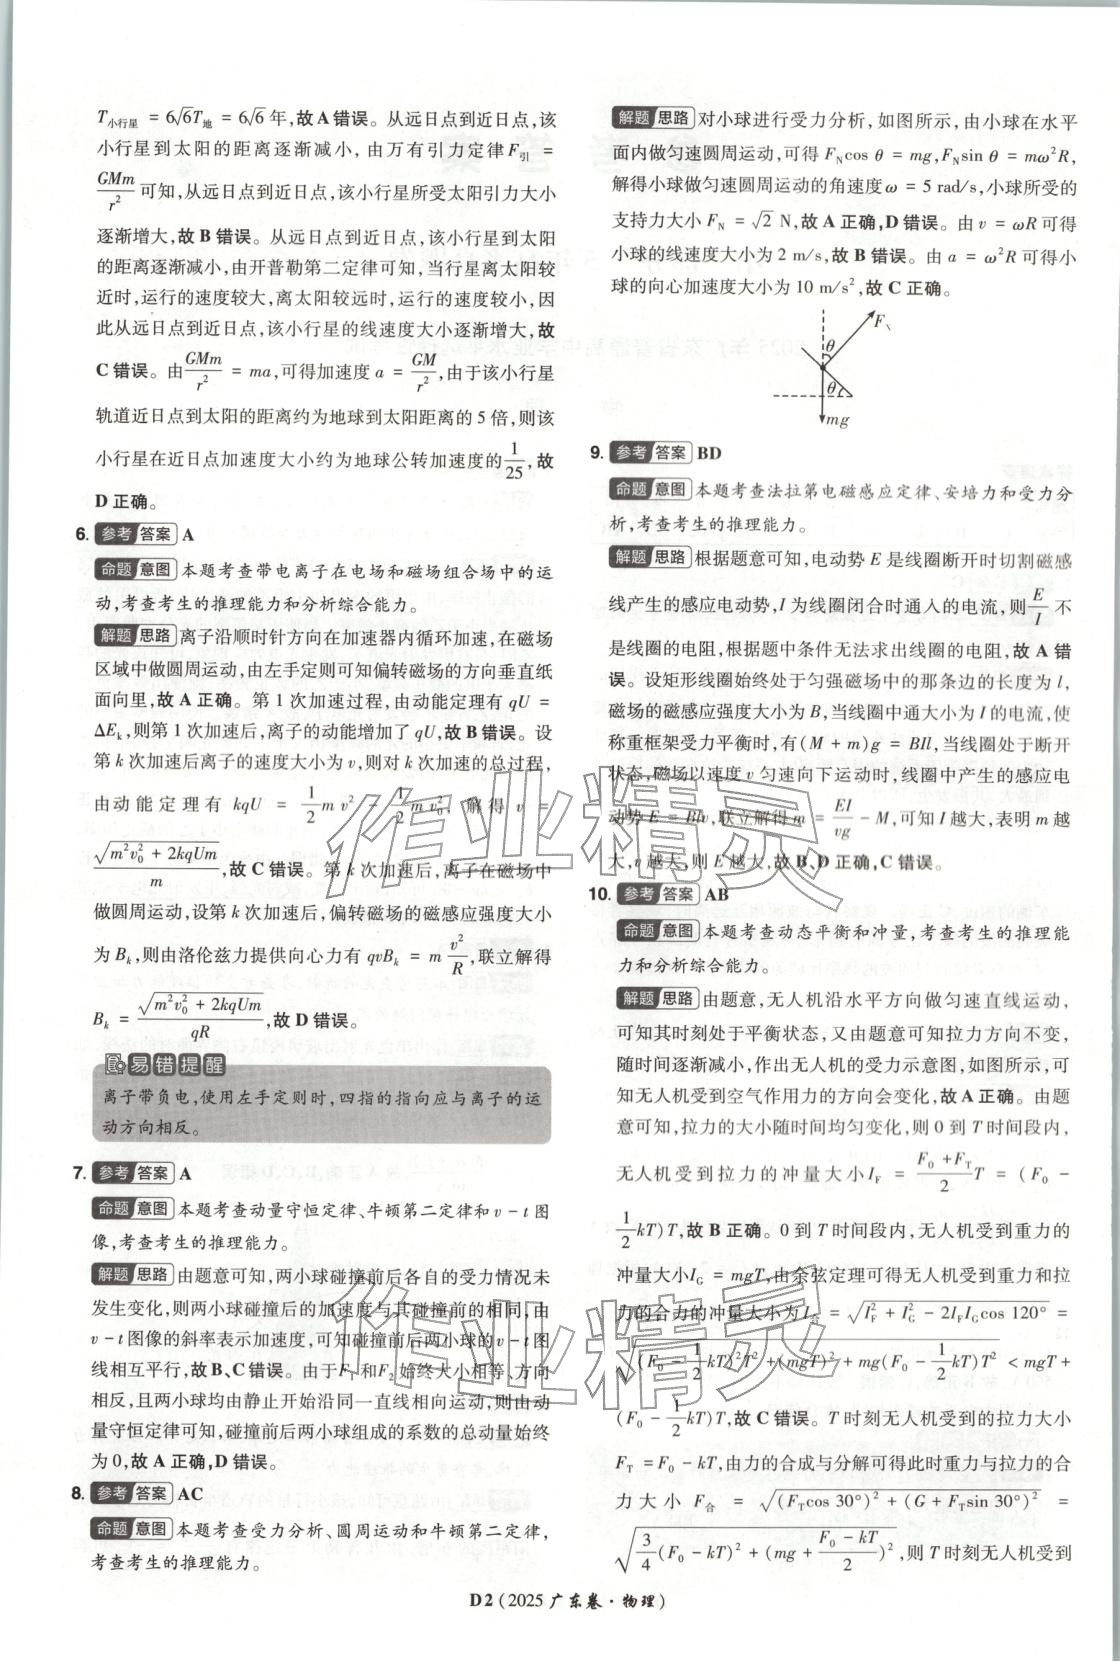 T小行星 = 6√6T地 = 6√6 年,故 A 错误。从远日点到近日点,该
小行星到太阳的距离逐渐减小,由万有引力定律 F引 =
GMm/r² 可知,从远日点到近日点,该小行星所受太阳引力大小
逐渐增大,故 B 错误。从远日点到近日点,该小行星到太阳
的距离逐渐减小,由开普勒第二定律可知,当行星离太阳较
近时,运行的速度较大,离太阳较远时,运行的速度较小,因
此从远日点到近日点,该小行星的线速度大小逐渐增大,故
C 错误。由 GMm/r² = ma,可得加速度 a = GM/r²,由于该小行星
轨道近日点到太阳的距离约为地球到太阳距离的 5 倍,则该
小行星在近日点加速度大小约为地球公转加速度的 1/25,故
D 正确。
6. 参考答案 A
命题意图 本题考查带电离子在电场和磁场组合场中的运
动,考查考生的推理能力和分析综合能力。
解题思路 离子沿顺时针方向在加速器内循环加速,在磁场
区域中做圆周运动,由左手定则可知偏转磁场的方向垂直纸
面向里,故 A 正确。第 1 次加速过程,由动能定理有 qU =
ΔEk,则第 1 次加速后,离子的动能增加了 qU,故 B 错误。设
第 k 次加速后离子的速度大小为 v,则对 k 次加速的总过程,
由动能定理有 kqU = 1/2 mv² − 1/2 mv₀²,解得 v =
√(m²v₀² + 2kqUm)/m,故 C 错误。第 k 次加速后,离子在磁场中
做圆周运动,设第 k 次加速后,偏转磁场的磁感应强度大小
为 Bk,则由洛伦兹力提供向心力有 qvBk = m v²/R,联立解得
Bk = √(m²v₀² + 2kqUm)/qR,故 D 错误。
易错提醒
离子带负电,使用左手定则时,四指的指向应与离子的运
动方向相反。
7. 参考答案 A
命题意图 本题考查动量守恒定律、牛顿第二定律和 v − t 图
像,考查考生的推理能力。
解题思路 由题意可知,两小球碰撞前后各自的受力情况未
发生变化,则两小球碰撞后的加速度与其碰撞前的相同,由
v − t 图像的斜率表示加速度,可知碰撞前后两小球的 v − t 图
线相互平行,故 B、C 错误。由于 F₁ 和 F₂ 始终大小相等、方向
相反,且两小球均由静止开始沿同一直线相向运动,则由动
量守恒定律可知,碰撞前后两小球组成的系数的总动量始终
为 0,故 A 正确,D 错误。
8. 参考答案 AC
命题意图 本题考查受力分析、圆周运动和牛顿第二定律,
考查考生的推理能力。
解题思路 对小球进行受力分析,如图所示,由小球在水平
面内做匀速圆周运动,可得 FNcos θ = mg,FNsin θ = mω²R,
解得小球做匀速圆周运动的角速度 ω = 5 rad/s,小球所受的
支持力大小 FN = √2 N,故 A 正确,D 错误。由 v = ωR 可得
小球的线速度大小为 2 m/s,故 B 错误。由 a = ω²R 可得小
球的向心加速度大小为 10 m/s²,故 C 正确。
FN
θ
θ
mg
9. 参考答案 BD
命题意图 本题考查法拉第电磁感应定律、安培力和受力分
析,考查考生的推理能力。
解题思路 根据题意可知,电动势 E 是线圈断开时切割磁感
线产生的感应电动势,I 为线圈闭合时通入的电流,则 E/I 不
是线圈的电阻,根据题中条件无法求出线圈的电阻,故 A 错
误。设矩形线圈始终处于匀强磁场中的那条边的长度为 l,
磁场的磁感应强度大小为 B,当线圈中通大小为 I 的电流,使
称重框架受力平衡时,有(M + m)g = BIl,当线圈处于断开
状态,磁场以速度 v 匀速向下运动时,线圈中产生的感应电
动势 E = Blv,联立解得 m = EI/vg − M,可知 I 越大,表明 m 越
大,v 越大,则 E 越大,故 B、D 正确,C 错误。
10. 参考答案 AB
命题意图 本题考查动态平衡和冲量,考查考生的推理能
力和分析综合能力。
解题思路 由题意,无人机沿水平方向做匀速直线运动,
可知其时刻处于平衡状态,又由题意可知拉力方向不变,
随时间逐渐减小,作出无人机的受力示意图,如图所示,可
知无人机受到空气作用力的方向会变化,故 A 正确。由题
意可知,拉力的大小随时间均匀变化,则 0 到 T 时间段内,
无人机受到拉力的冲量大小 IF = (F₀ + FT)/2 T = (F₀ −
1/2 kT)T,故 B 正确。0 到 T 时间段内,无人机受到重力的
冲量大小 IG = mgT,由余弦定理可得无人机受到重力和拉
力的合力的冲量大小为 I合 = √(IF² + IG² − 2IFIGcos 120°) =
√((F₀ − 1/2 kT)²T² + (mgT)² + mg(F₀ − 1/2 kT)T²) < mgT +
(F₀ − 1/2 kT)T,故 C 错误。T 时刻无人机受到的拉力大小
FT = F₀ − kT,由力的合成与分解可得此时重力与拉力的合
力大小 F合 = √((FTcos 30°)² + (G + FTsin 30°)²) =
√(3/4 (F₀ − kT)² + (mg + (F₀ − kT)/2)²),则 T 时刻无人机受到
D2 (2025 广东卷·物理)
作业精灵
作业精灵